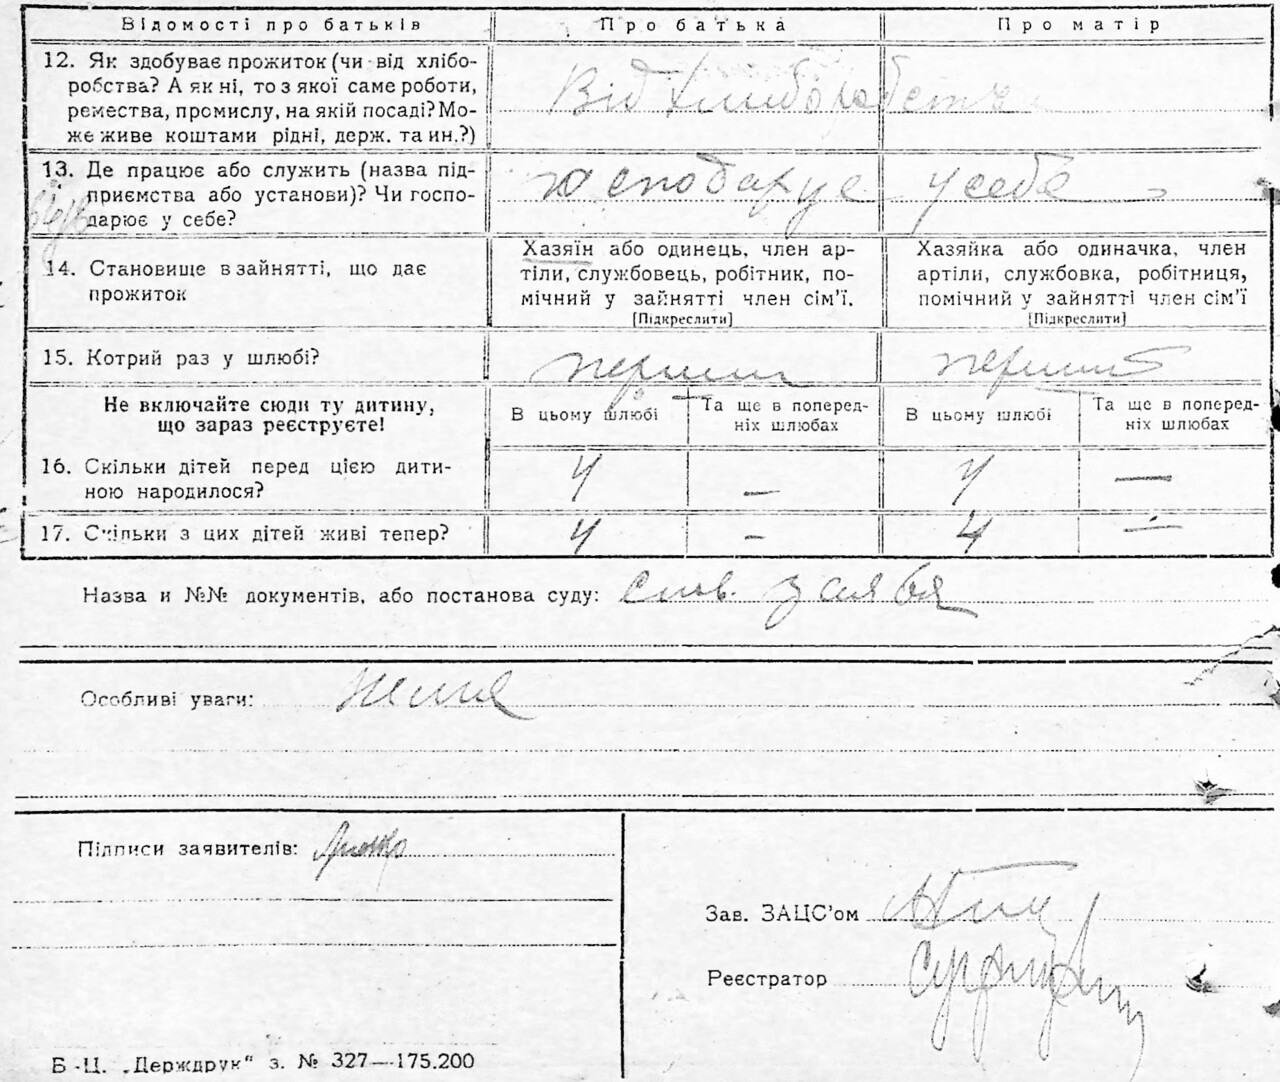 Відомості про батьків Про батька Про матір
12. Як здобуває прожиток (чи від хлібо-
робства? А як ні, то з якої саме роботи,
ремества, промислу, на якій посаді? Мо-
же живе коштами рідні, держ. та ин.?)
Від хлиборобств
13. Де працює або служить (назва під-
приємства або установи)? Чи госпо-
дарює у себе?
господарує у себе
14. Становище в зайнятті, що дає
прожиток
Хазяїн або одинець, член ар-
тіли, службовець, робітник, по-
мічний у зайнятті член сім’ї.
[Підкреслити]
Хазяйка або одиначка, член
артіли, службовка, робітниця,
помічний у зайнятті член сім’ї
[Підкреслити]
15. Котрий раз у шлюбі? перший перший
Не включайте сюди ту дитину,
що зараз реєструєте!
В цьому шлюбі
Та ще в поперед-
ніх шлюбах
В цьому шлюбі
Та ще в поперед-
ніх шлюбах
16. Скільки дітей перед цією дити-
ною народилося?
4 — 4 —
17. Скільки з цих дітей живі тепер? 4 - 4 —
Назва и №№ документів, або постанова суду: слов. заява
Особливі уваги: Нема
Підписи заявителів:
Зав. ЗАЦС’ом
Реєстратор
Б.-Ц. „Держдрук“ з. № 327—175.200